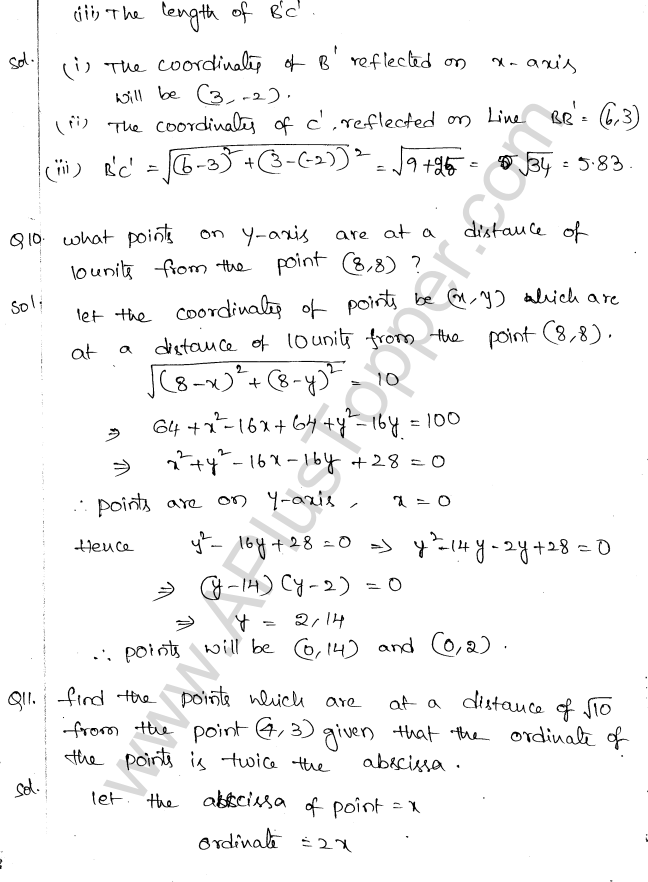 (iii) The length of B'C'.
Sol. (i) The coordinates of B' reflected on x-axis
will be (3,-2).
(ii) The coordinates of C', reflected on Line BB' = (6,3)
(iii) B'C' = √((6-3)² + (3-(-2))²) = √(9+25) = √34 = 5.83.
Q10. what points on y-axis are at a distance of
10 units from the point (8,8) ?
Sol. let the coordinates of points be (x,y) which are
at a distance of 10 units from the point (8,8).
√((8-x)² + (8-y)²) = 10
⇒ 64 + x² - 16x + 64 + y² - 16y = 100
⇒ x² + y² - 16x - 16y + 28 = 0
∴ points are on y-axis, x = 0
Hence y² - 16y + 28 = 0 ⇒ y² - 14y - 2y + 28 = 0
⇒ (y-14) (y-2) = 0
⇒ y = 2,14
∴ points will be (0,14) and (0,2).
Q11. find the points which are at a distance of √10
from the point (4,3) given that the ordinate of
the points is twice the abscissa.
Sol. let the abscissa of point = x
ordinate = 2x
www.APlusTopper.com